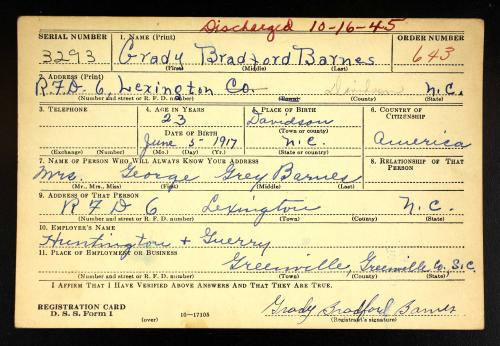 Discharged 10-16-45
SERIAL NUMBER 1. NAME (Print) ORDER NUMBER
3293 Grady Bradford Barnes 643
(First) (Middle) (Last)
2. ADDRESS (Print)
R.F.D. 6, Lexington Co. Davidson N.C.
(Number and street or R. F. D. number) (Town) (County) (State)
3. TELEPHONE 4. AGE IN YEARS 5. PLACE OF BIRTH 6. COUNTRY OF CITIZENSHIP
23 Davidson
(Town or county)
DATE OF BIRTH
June 5 - 1917 N.C. America
(Exchange) (Number) (Mo.) (Day) (Yr.) (State or country)
7. NAME OF PERSON WHO WILL ALWAYS KNOW YOUR ADDRESS 8. RELATIONSHIP OF THAT PERSON
Mrs. George Grey Barnes
(Mr., Mrs., Miss) (First) (Middle) (Last)
9. ADDRESS OF THAT PERSON
R F D 6 Lexington N.C.
(Number and street or R. F. D. number) (Town) (County) (State)
10. EMPLOYER'S NAME
Huntington + Guerry
11. PLACE OF EMPLOYMENT OR BUSINESS
Greenville, Greenville Co. S.C.
(Number and street or R. F. D. number) (Town) (County) (State)
I AFFIRM THAT I HAVE VERIFIED ABOVE ANSWERS AND THAT THEY ARE TRUE.
REGISTRATION CARD
D. S. S. Form 1 Grady Bradford Barnes
(over) 16—17105 (Registrant's signature)